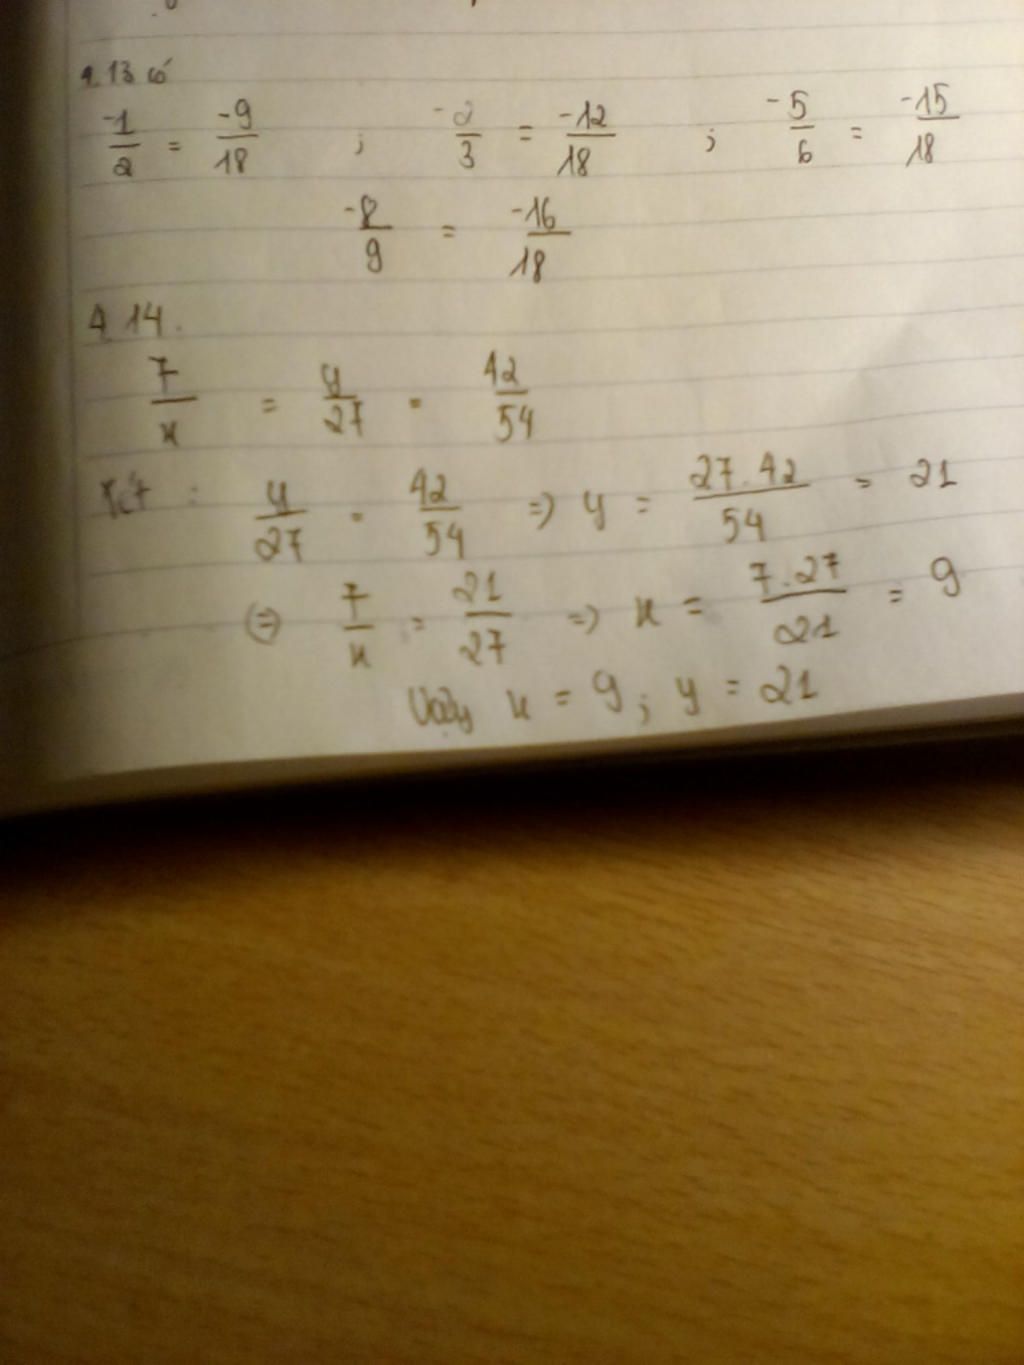 4.13 có
-1/2 = -9/18 ; -2/3 = -12/18 ; -5/6 = -15/18
-8/9 = -16/18
4.14.
7/x = y/27 = 42/54
Xét : y/27 = 42/54 => y = 27.42/54 = 21
(=) 7/x = 21/27 => x = 7.27/21 = 9
Vậy x = 9 ; y = 21